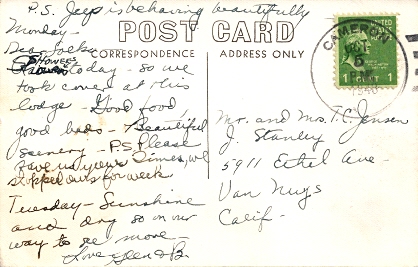 P.S. Jeep is behaving beautifully
POST CARD
CORRESPONDENCE
ADDRESS ONLY
Monday-
Dear Folks
SHOWERS
today - so we
took cover at this
lodge - Good food,
good beds - Beautiful
scenery - P.S. Please
save us your Times, we
stopped ours for week
Tuesday - Sunshine
and dry so on our
way to see more -
Love Glen & B.
CAMERON
1940
UNITED STATES
1 CENT 1
Mr. and Mrs. T.C. Jensen
J. Stanley
5911 Ethel Ave-
Van Nuys
Calif-